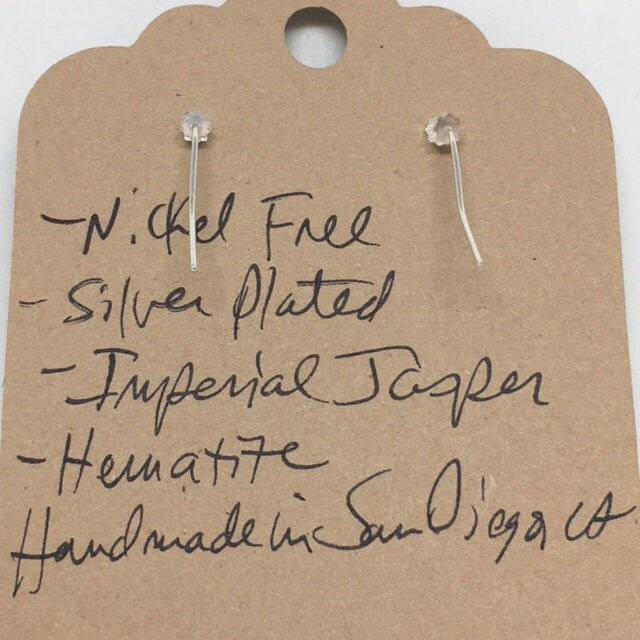 -Nickel Free
-Silver Plated
-Imperial Jasper
-Hematite
Handmade in San Diego CA